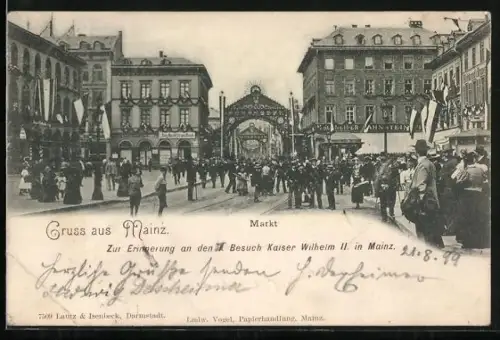 Markt
Gruss aus Mainz.
Zur Erinnerung an den Besuch Kaiser Wilhelm II. in Mainz.
21.8.99
Herzliche Grüße senden
Ludwig
7509 Lautz & Isenbeck, Darmstadt.
Ludw. Vogel, Papierhandlung, Mainz.